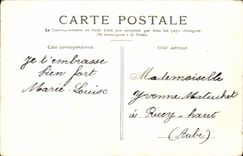 CARTE POSTALE
La Correspondance au recto n'est pas acceptée par tous les pays étrangers
Se renseigner à la Poste
Côté correspondance.
Côté adresse.
Je t'embrasse
bien fort
Marie-Louise
Mademoiselle
Yvonne
à haut
(Aube)